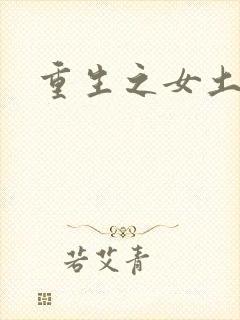 重生之女土
若艾青